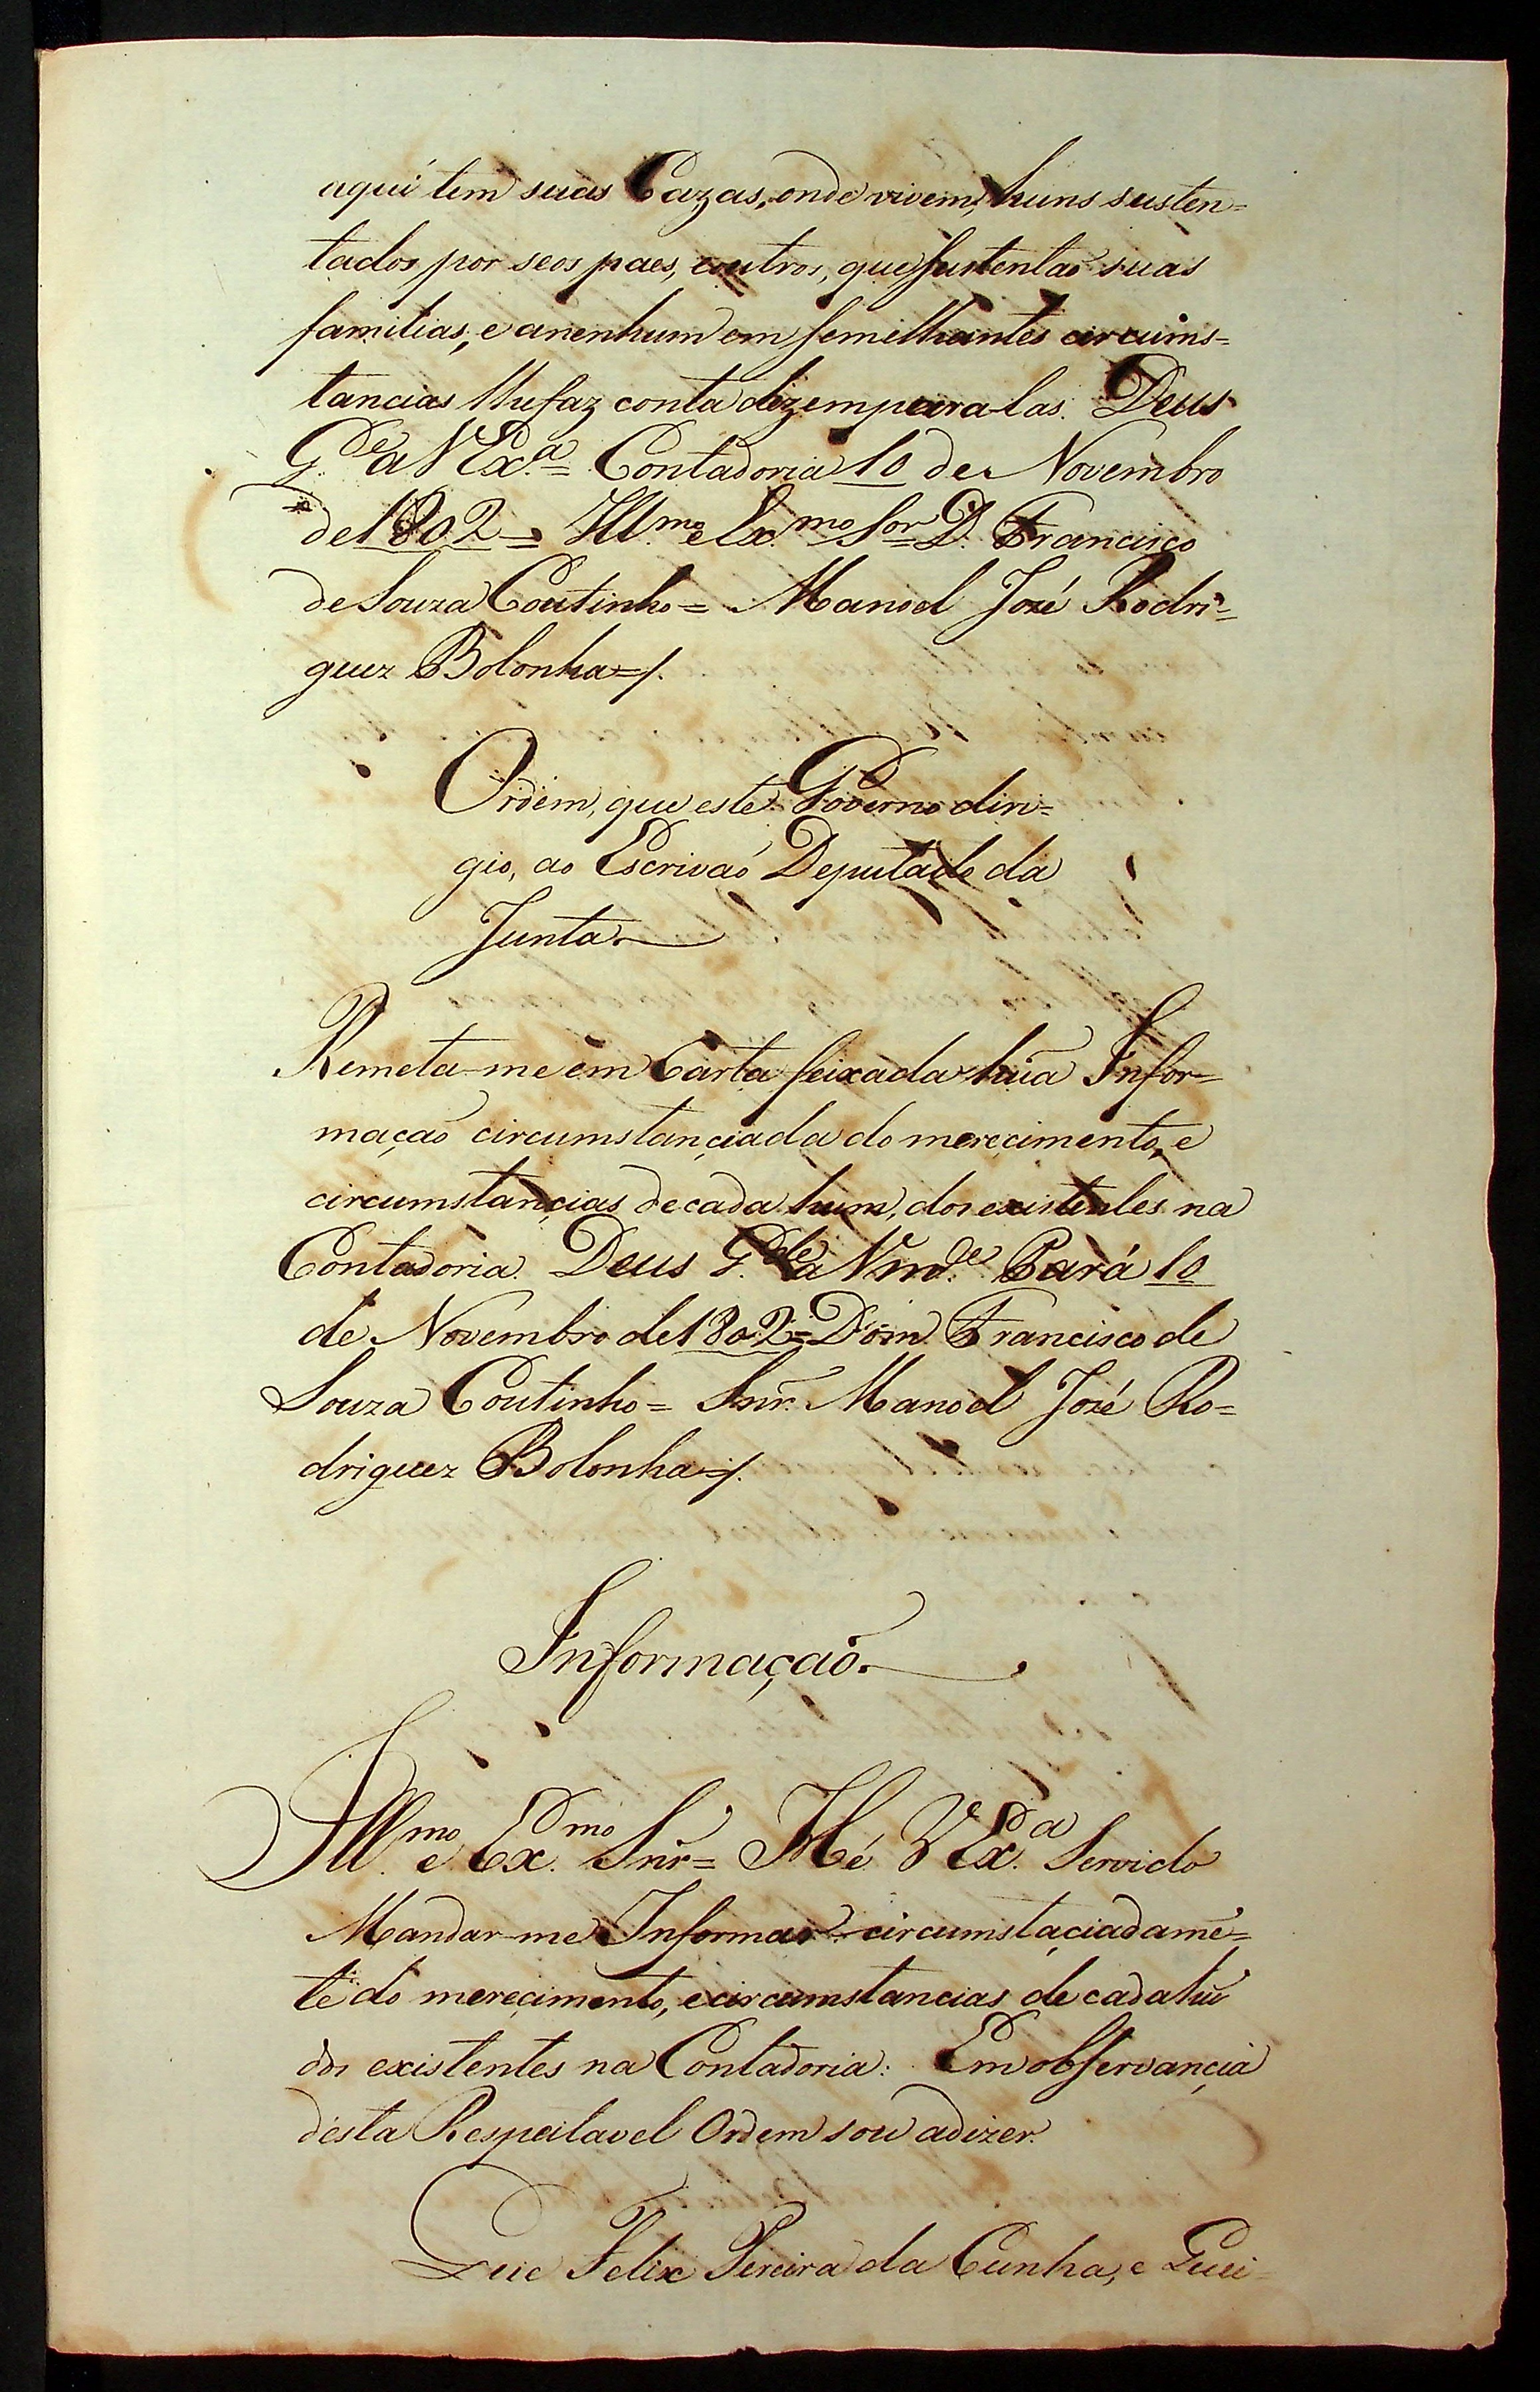 aqui tem suas Cazas, onde vivem, huns susten=
tados por seos paes, eoutros, que sustentaõ suas
familias, e anenhum em semilhantes circums=
tancias lhefaz conta dezemparalas. Deus
G.de a V Ex.a= Contadoria 10 de Novembro
de 1802= Ill.mo e Ex.mo Sor D. Francisco
de Souza Coutinho= Manoel José Rodri=
guez Bolonha=/.
Ordem, que este Governo diri=
gio, ao Escrivaõ Deputado da
Junta.
Remeta-me em Carta feixada hũa Infor=
maçaõ circumstançiada do mereçimento, e
circumstançias decada hum, dos existentes na
Contadoria. Deus G.de a Vm.ce Pará 10
de Novembro de 1802= Dom Francisco de
Souza Coutinho= Snr. Manoel José Ro=
driguez Bolonha=/.
Informaçaõ.
Ill.mo e Ex.mo Snr= Hé V Ex.a Servido
Mandar-me Informar circumstaçiadamẽ=
te do mereçimento, e circumstancias de cada hũ
dos existentes na Contadoria: Em observançia
desta Respeitavel Ordem sou adizer.
Que Felix Pereira da Cunha, e Qui=